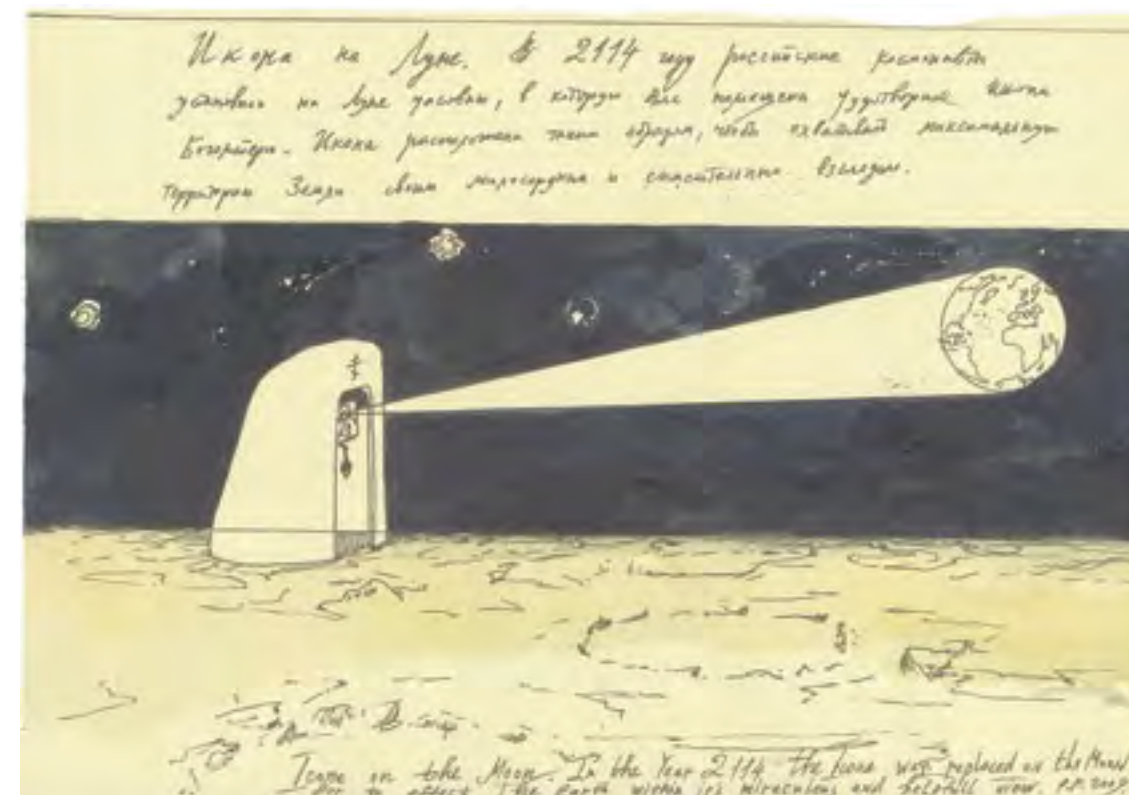 Икона на Луне. В 2114 году российские космонавты
установили на Луне часовню, в которую была помещена Чудотворная Икона
Богоматери. Икона расположена таким образом, чтобы охватывать максимальную
территорию Земли своим милосердным и спасительным взглядом.
Icone on the Moon. In the Year 2114 the Icone was replaced on the Moon
to the Earth within its miraculous and view. P.P. 2009.